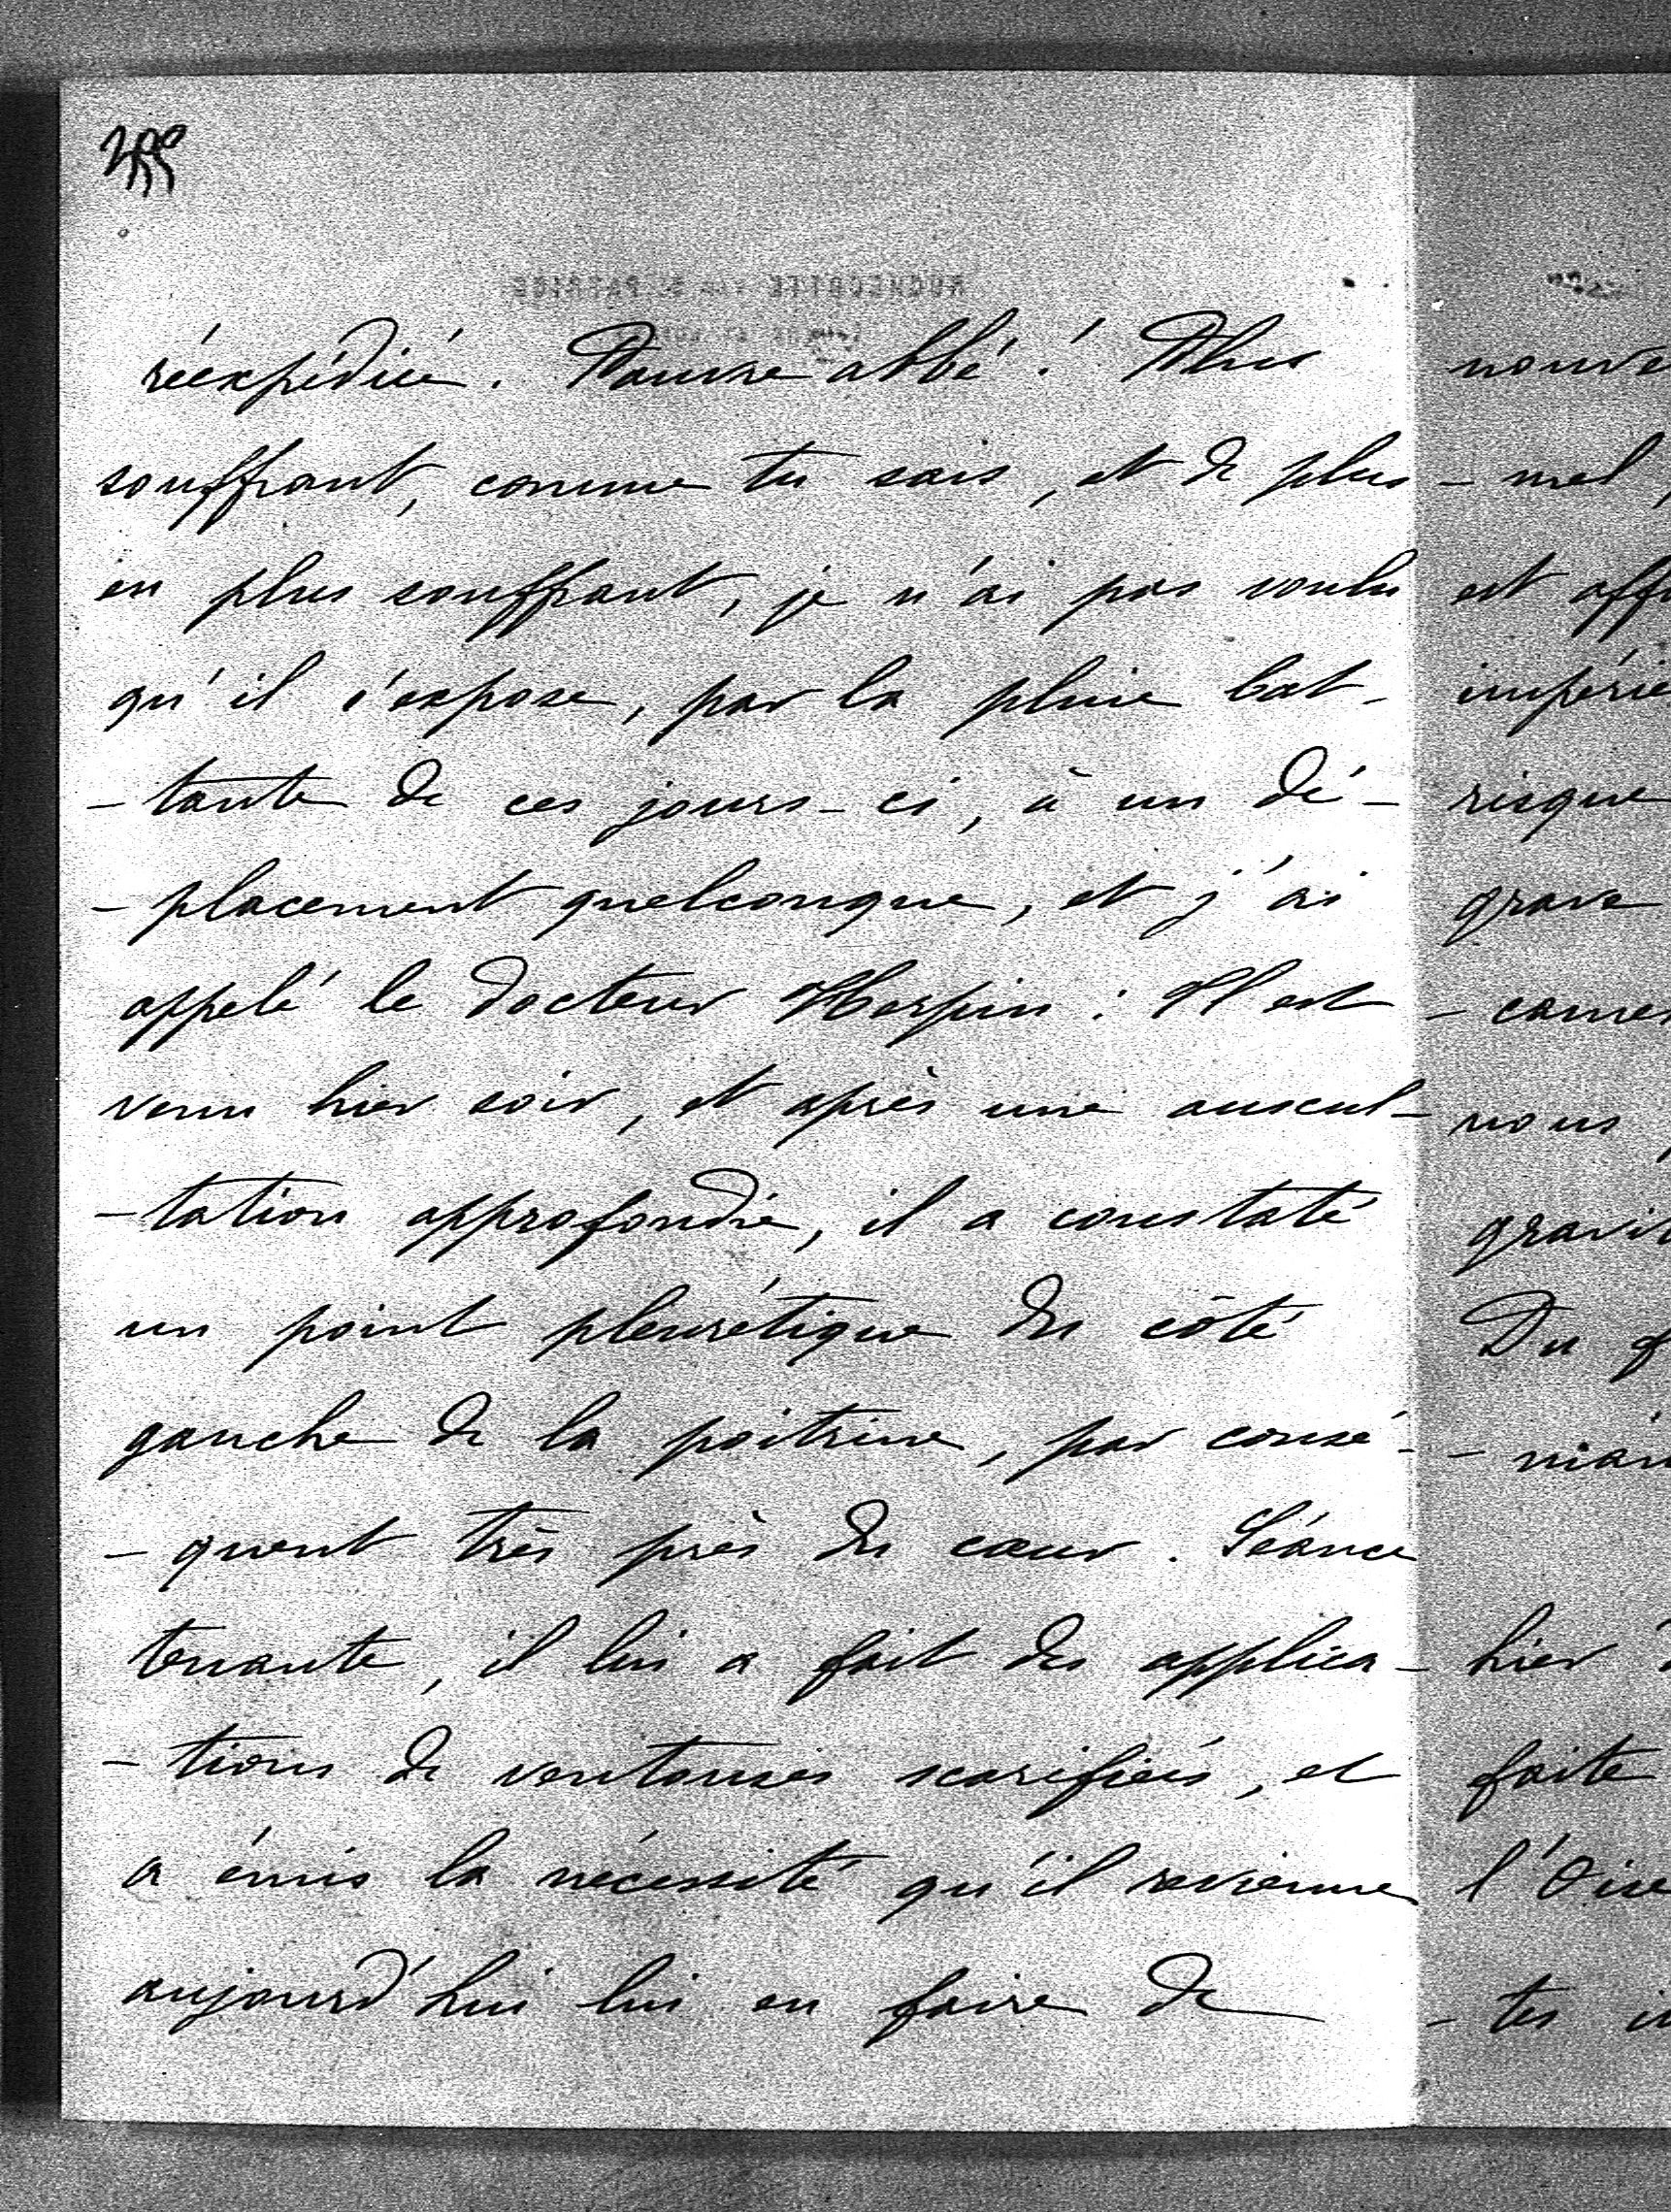 réexpédié. Pauvre abbé ! Plus
souffrant, comme tu sais, et de plus
en plus souffrant, je n'ai pas voulu
qu'il s'expose, par la pluie bat-
-tante de ces jours-ci, à un dé-
-placement quelconque, et j'ai
appelé le docteur Herpin : Il est
venu hier soir, et après une auscul-
-tation approfondie, il a constaté
un point pleurétique du côté
gauche de la poitrine, par consé-
-quent très près du cœur. Séance
tenante, il lui a fait des applica-
-tions de ventouses scarifiées, et
a émis la nécessité qu'il revienne
aujourd'hui lui en faire de
nouve
-mel,
est aff
impérie
risque
grave
-came
nous
gravit
Du
-nian
hier
faite
l'Oise
-tes